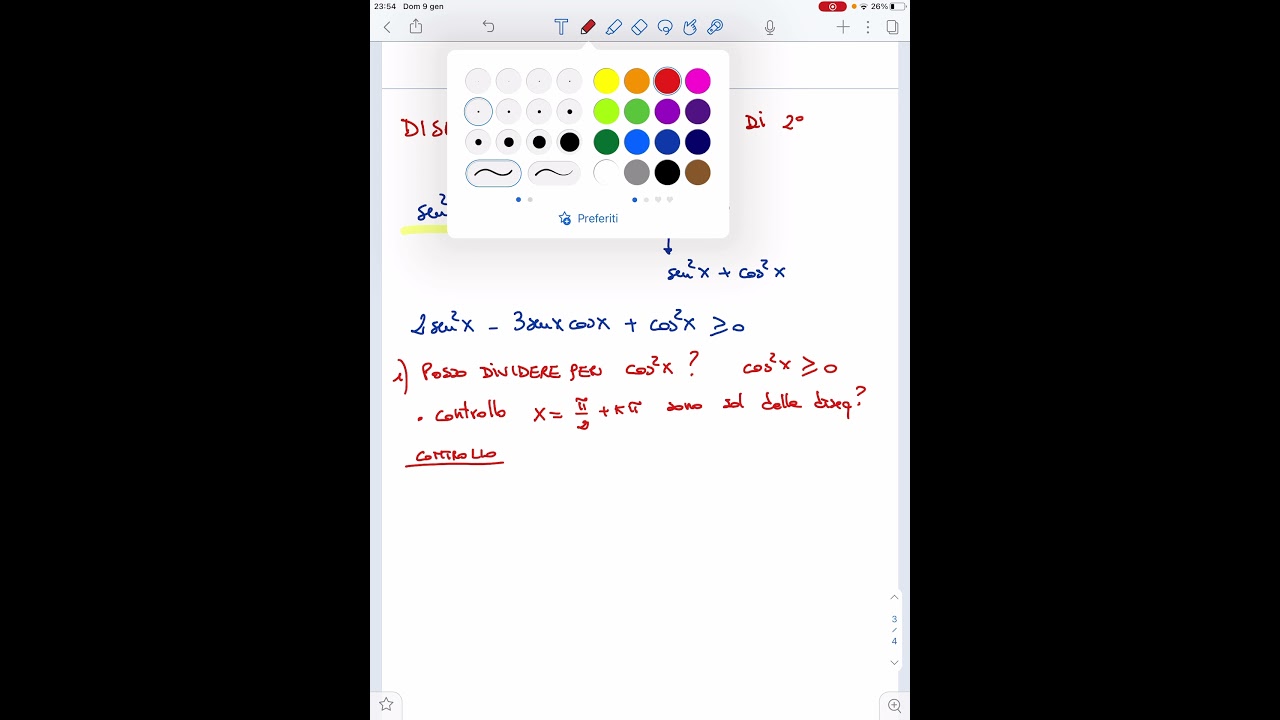 23:54 Dom 9 gen 26%
T
Preferiti
DI 2°
sen²
sen²x + cos²x
2sen²x - 3senx cosx + cos²x ⩾ 0
1) POSSO DIVIDERE PER cos²x ? cos²x ⩾ 0
• controllo x = π/2 + kπ sono sol della diseq?
CONTROLLO
3
/
4